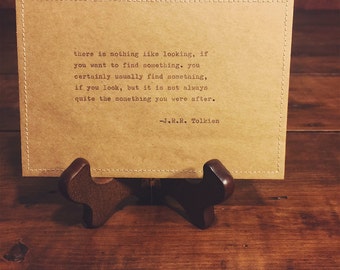 there is nothing like looking, if
you want to find something. you
certainly usually find something,
if you look, but it is not always
quite the something you were after.
-J.R.R. Tolkien